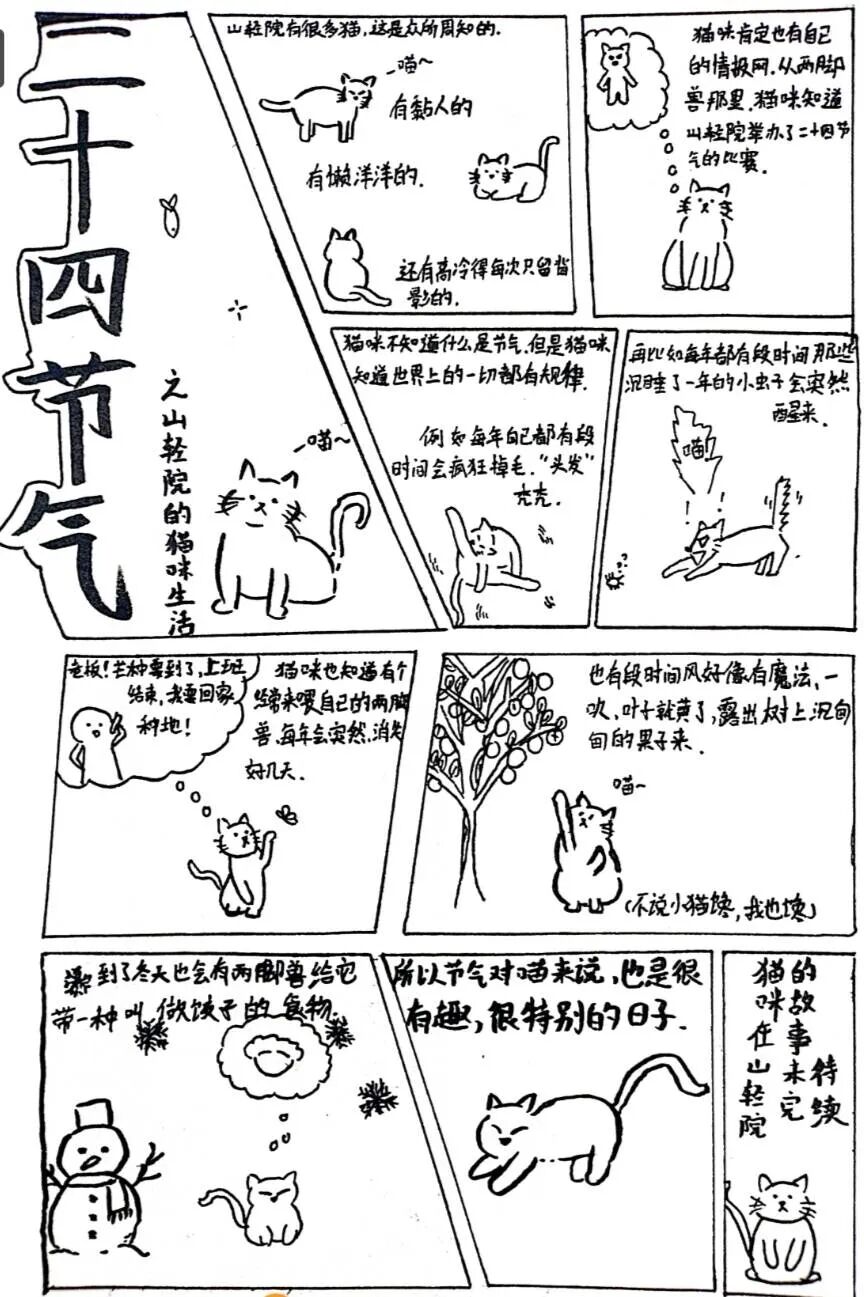 二十四节气
之山轻院的猫咪生活
喵~
山轻院有很多猫,这是众所周知的.
喵~
有黏人的
有懒洋洋的.
还有高冷得每次只留背
影的.
猫咪肯定也有自己
的情报网.从两脚
兽那里,猫咪知道
山轻院举办了二十四节
气的比赛.
猫咪不知道什么是节气,但是猫咪
知道世界上的一切都有规律.
例如每年自己都有段
时间会疯狂掉毛."头发"
秃秃.
再比如每年都有段时间那些
沉睡了一年的小虫子会突然
醒来.
喵
! !
??
老板!芒种要到了,上班
结束,我要回家
种地!
猫咪也知道有个
经常来喂自己的两脚
兽,每年会突然消失
好几天.
也有段时间风好像有魔法,一
吹,叶子就黄了,露出树上沉甸
甸的果子来.
喵~
(不说小猫馋,我也馋)
到了冬天也会有两脚兽给它
带一种叫做饺子的食物.
所以节气对喵来说,也是很
有趣,很特别的日子.
猫咪在山轻院
的故事未完
待续